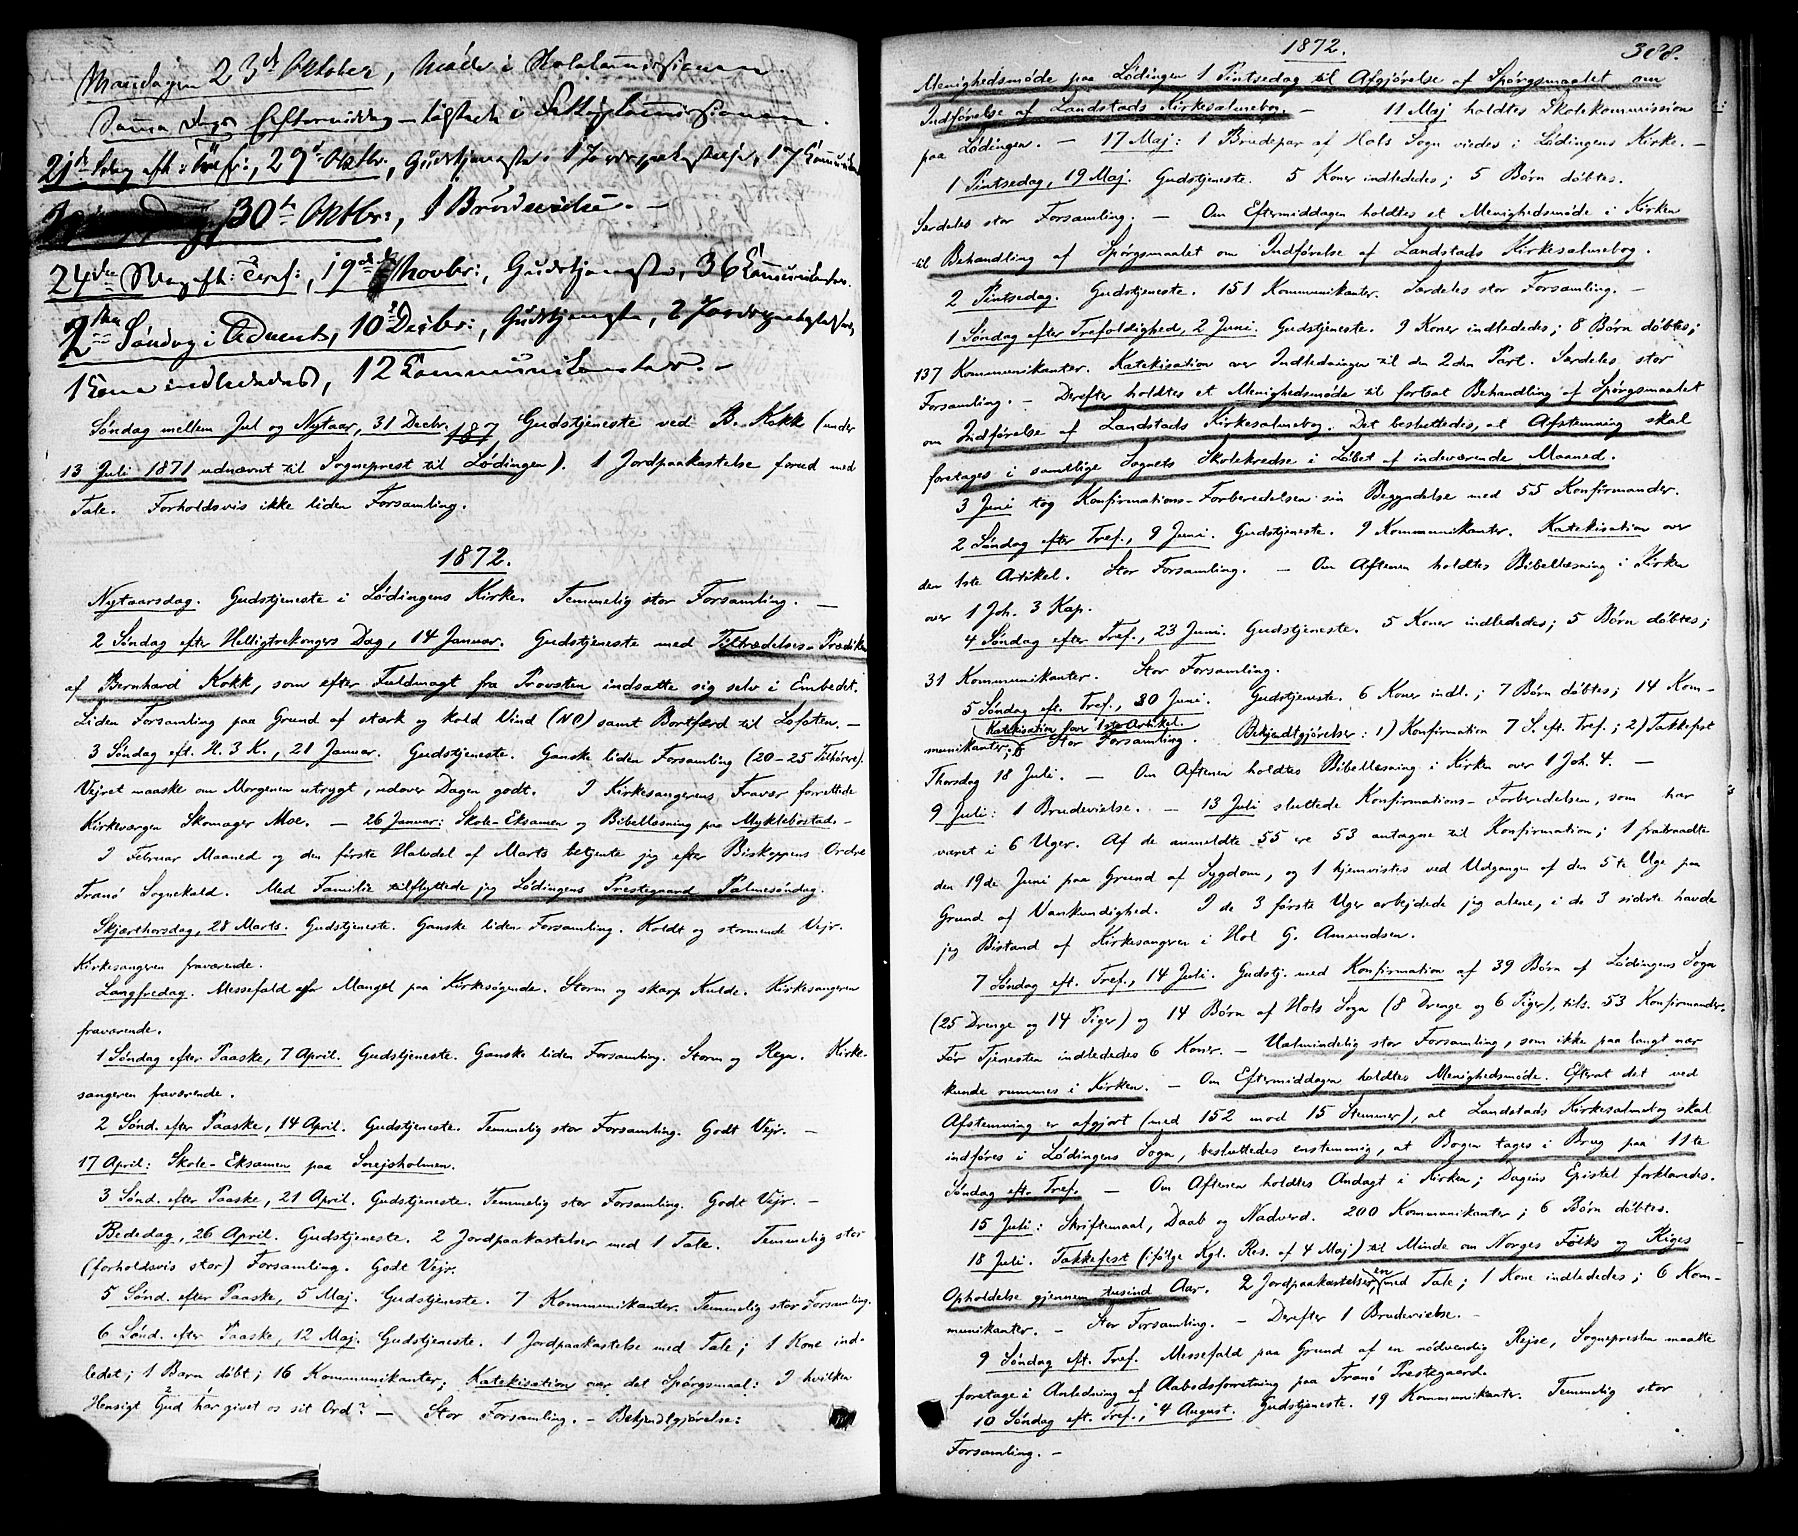 Mandagen 23de Oktober, Möde i Skolekommissionen.
Samme Dags Eftermiddag – tilstede i
21de Sdag efter Tref:, 29de Oktbr., Gudstjeneste, 1 Jordpaakastelse, 17 Communik
30te Oktbr:, 1 Brudevielse. –
24de Sdag eft: Tref:, 19de Novbr:, Gudstjeneste, 36 Communikanter.
2den Söndag i Advent, 10de Decbr:, Gudstjeneste, 2 Jordpaakastelser,
1 Kone indlededes, 12 Communikanter. –
Söndag mellem Jul og Nytaar, 31 Decbr. 187 Gudstjeneste ved B. Kokk (under
13 Juli 1871 udnævnt til Sogneprest til Lödingen). 1 Jordpaakastelse forud med
Tale. Forholdsvis ikke liden Forsamling.
1872.
Nytaarsdag. Gudstjeneste i Lödingens Kirke. Temmelig stor Forsamling. –
2 Söndag efter Helligtrekongers Dag, 14 Januar. Gudstjeneste med Tiltrædelses-Prædiken
af Bernhard Kokk, som efter Fuldmagt fra Provsten indsatte sig selv i Embedet.
Liden Forsamling paa Grund af stærk og kold Vind (NO) samt Bortfærd til Lofoten. –
3 Söndag eft. H. 3 K., 21 Januar. Gudstjeneste. Ganske liden Forsamling (20–25 Tilhörere).
Vejret maaske om Morgenen utrygt, udover Dagen godt. I Kirkesangerens Fravær forrettede
Kirkeværgen Skomager Moe. – 26 Januar: Skole-Eksamen og Bibellæsning paa Myklebostad. –
I Februar Maaned og den förste Halvdel af Marts betjente jeg efter Biskoppens Ordre
Tranö Sognekald. Med Familie tilflyttede jeg Lödingens Prestegaard Palmesöndag.
Skjærthorsdag, 28 Marts. Gudstjeneste. Ganske liden Forsamling. Koldt og stormende Vejr.
Kirkesangeren fraværende.
Langfredag. Messefald af Mangel paa Kirkesögende. Storm og skarp Kulde. Kirkesangeren
fraværende.
1 Söndag efter Paaske, 7 April. Gudstjeneste. Ganske liden Forsamling. Storm og Regn. Kirke-
sangeren fraværende.
2 Sönd. efter Paaske, 14 April. Gudstjeneste. Temmelig stor Forsamling. Godt Vejr. –
17 April: Skole-Eksamen paa Snejsholmen.
3 Sönd. efter Paaske, 21 April. Gudstjeneste. Temmelig stor Forsamling. Godt Vejr. –
Bededag, 26 April. Gudstjeneste. 2 Jordpaakastelser med 1 Tale. Temmelig stor
(forholdsvis stor) Forsamling. Godt Vejr.
5 Sönd. efter Paaske, 5 Maj. Gudstjeneste. 7 Kommunikanter. Temmelig stor Forsamling.
6 Sönd. efter Paaske, 12 Maj. Gudstjeneste. 1 Jordpaakastelse med Tale; 1 Kone ind-
ledet; 1 Barn döbt; 16 Kommunikanter; Katekisation over det Spörgsmaal: I hvilken
Hensigt har Gud givet os sit Ord? – Stor Forsamling. – Bekjendtgjörelse:
1872.
308.
Menighedsmöde paa Lödingen 1 Pintsedag til Afgjörelse af Spörgsmaalet om
Indförelse af Landstads Kirkesalmebog. – 11 Maj holdtes Skolekommission
paa Lödingen. – 17 Maj: 1 Brudepar af Hols Sogn viedes i Lödingens Kirke. –
1 Pintsedag, 19 Maj. Gudstjeneste. 5 Koner indlededes; 5 Börn döbtes.
Særdeles stor Forsamling. – Om Eftermiddagen holdtes et Menighedsmöde i Kirken
til Behandling af Spörgsmaalet om Indförelse af Landstads Kirkesalmebog.
2 Pintsedag. Gudstjeneste. 151 Kommunikanter. Særdeles stor Forsamling. –
1 Söndag efter Trefoldighed, 2 Juni. Gudstjeneste. 9 Koner indlededes; 8 Börn döbtes;
137 Kommunikanter. Katekisation over Indledningen til den 2den Part. Særdeles stor
Forsamling. – Derefter holdtes et Menighedsmöde til fortsat Behandling af Spörgsmaalet
om Indförelse af Landstads Kirkesalmebog. Det besluttedes, at Afstemning skal
foretages i samtlige Sognets Skolekredse i Löbet af indeværende Maaned.
3 Juni tog Konfirmations-Forberedelsen sin Begyndelse med 55 Konfirmander.
2 Söndag efter Tref., 9 Juni. Gudstjeneste. 9 Kommunikanter. Katekisation over
den 1ste Artikel. Stor Forsamling. – Om Aftenen holdtes Bibellæsning i Kirken
over 1 Joh. 3 Kap.
4 Söndag efter Tref., 23 Juni. Gudstjeneste. 5 Koner indlededes; 5 Börn döbtes;
31 Kommunikanter. Stor Forsamling.
5 Söndag eft. Tref., 30 Juni. Gudstjeneste. 6 Koner indl.; 7 Börn döbtes; 14 Kom-
Katekisation over 1ste Artikel.
munikanter; Stor Forsamling. Bekjendtgjörelser: 1) Konfirmation 7 S. eft. Tref.; 2) Takkefest
Thorsdag 18 Juli. – Om Aftenen holdtes Bibellæsning i Kirken over 1 Joh. 4. –
9 Juli: 1 Brudevielse. – 13 Juli sluttede Konfirmations-Forberedelsen, som har
været i 6 Uger. Af de anmeldte 55 ere 53 antagne til Konfirmation; 1 fratraadte
den 19de Juni paa Grund af Sygdom, og 1 hjemvistes ved Udgangen af den 5te Uge paa
Grund af Vankundighed. I de 3 förste Uger arbejdede jeg alene, i de 3 sidste havde
jeg Bistand af Kirkesangeren i Hol G. Amundsen.
7 Söndag eft. Tref., 14 Juli. Gudstj. med Konfirmation af 39 Börn af Lödingens Sogn
(25 Drenge og 14 Piger) og 14 Börn af Hols Sogn (8 Drenge og 6 Piger), tils. 53 Konfirmander.
För Tjenesten indlededes 6 Koner. – Ualmindelig stor Forsamling, som ikke paa langt nær
kunde rummes i Kirken. – Om Eftermiddagen holdtes Menighedsmöde. Efterat det ved
Afstemning er afgjort (med 152 mod 15 Stemmer), at Landstads Kirkesalmebog skal
indföres i Lödingens Sogn, besluttedes enstemmig, at Bogen tages i Brug paa 11te
Söndag eft. Tref. – Om Aftenen holdtes Andagt i Kirken; Dagens Epistel forklaredes.
15 Juli: Skriftemaal, Daab og Nadverd. 200 Kommunikanter; 6 Börn döbtes.
18 Juli. Takkefest (ifölge Kgl. Res. af 4 Maj) til Minde om Norges Folks og Riges
Opholdelse gjennem tusind Aar. 2 Jordpaakastelser, en med Tale; 1 Kone indlededes; 6 Kom-
munikanter. – Stor Forsamling. – Derefter 1 Brudevielse. –
9 Söndag eft. Tref. Messefald paa Grund af en nödvendig Rejse, Sognepresten maatte
foretage i Anledning af Aabodsforretning paa Tranö Prestegaard.
10 Söndag eft. Tref., 4 August. Gudstjeneste. 19 Kommunikanter. Temmelig stor
Forsamling. –